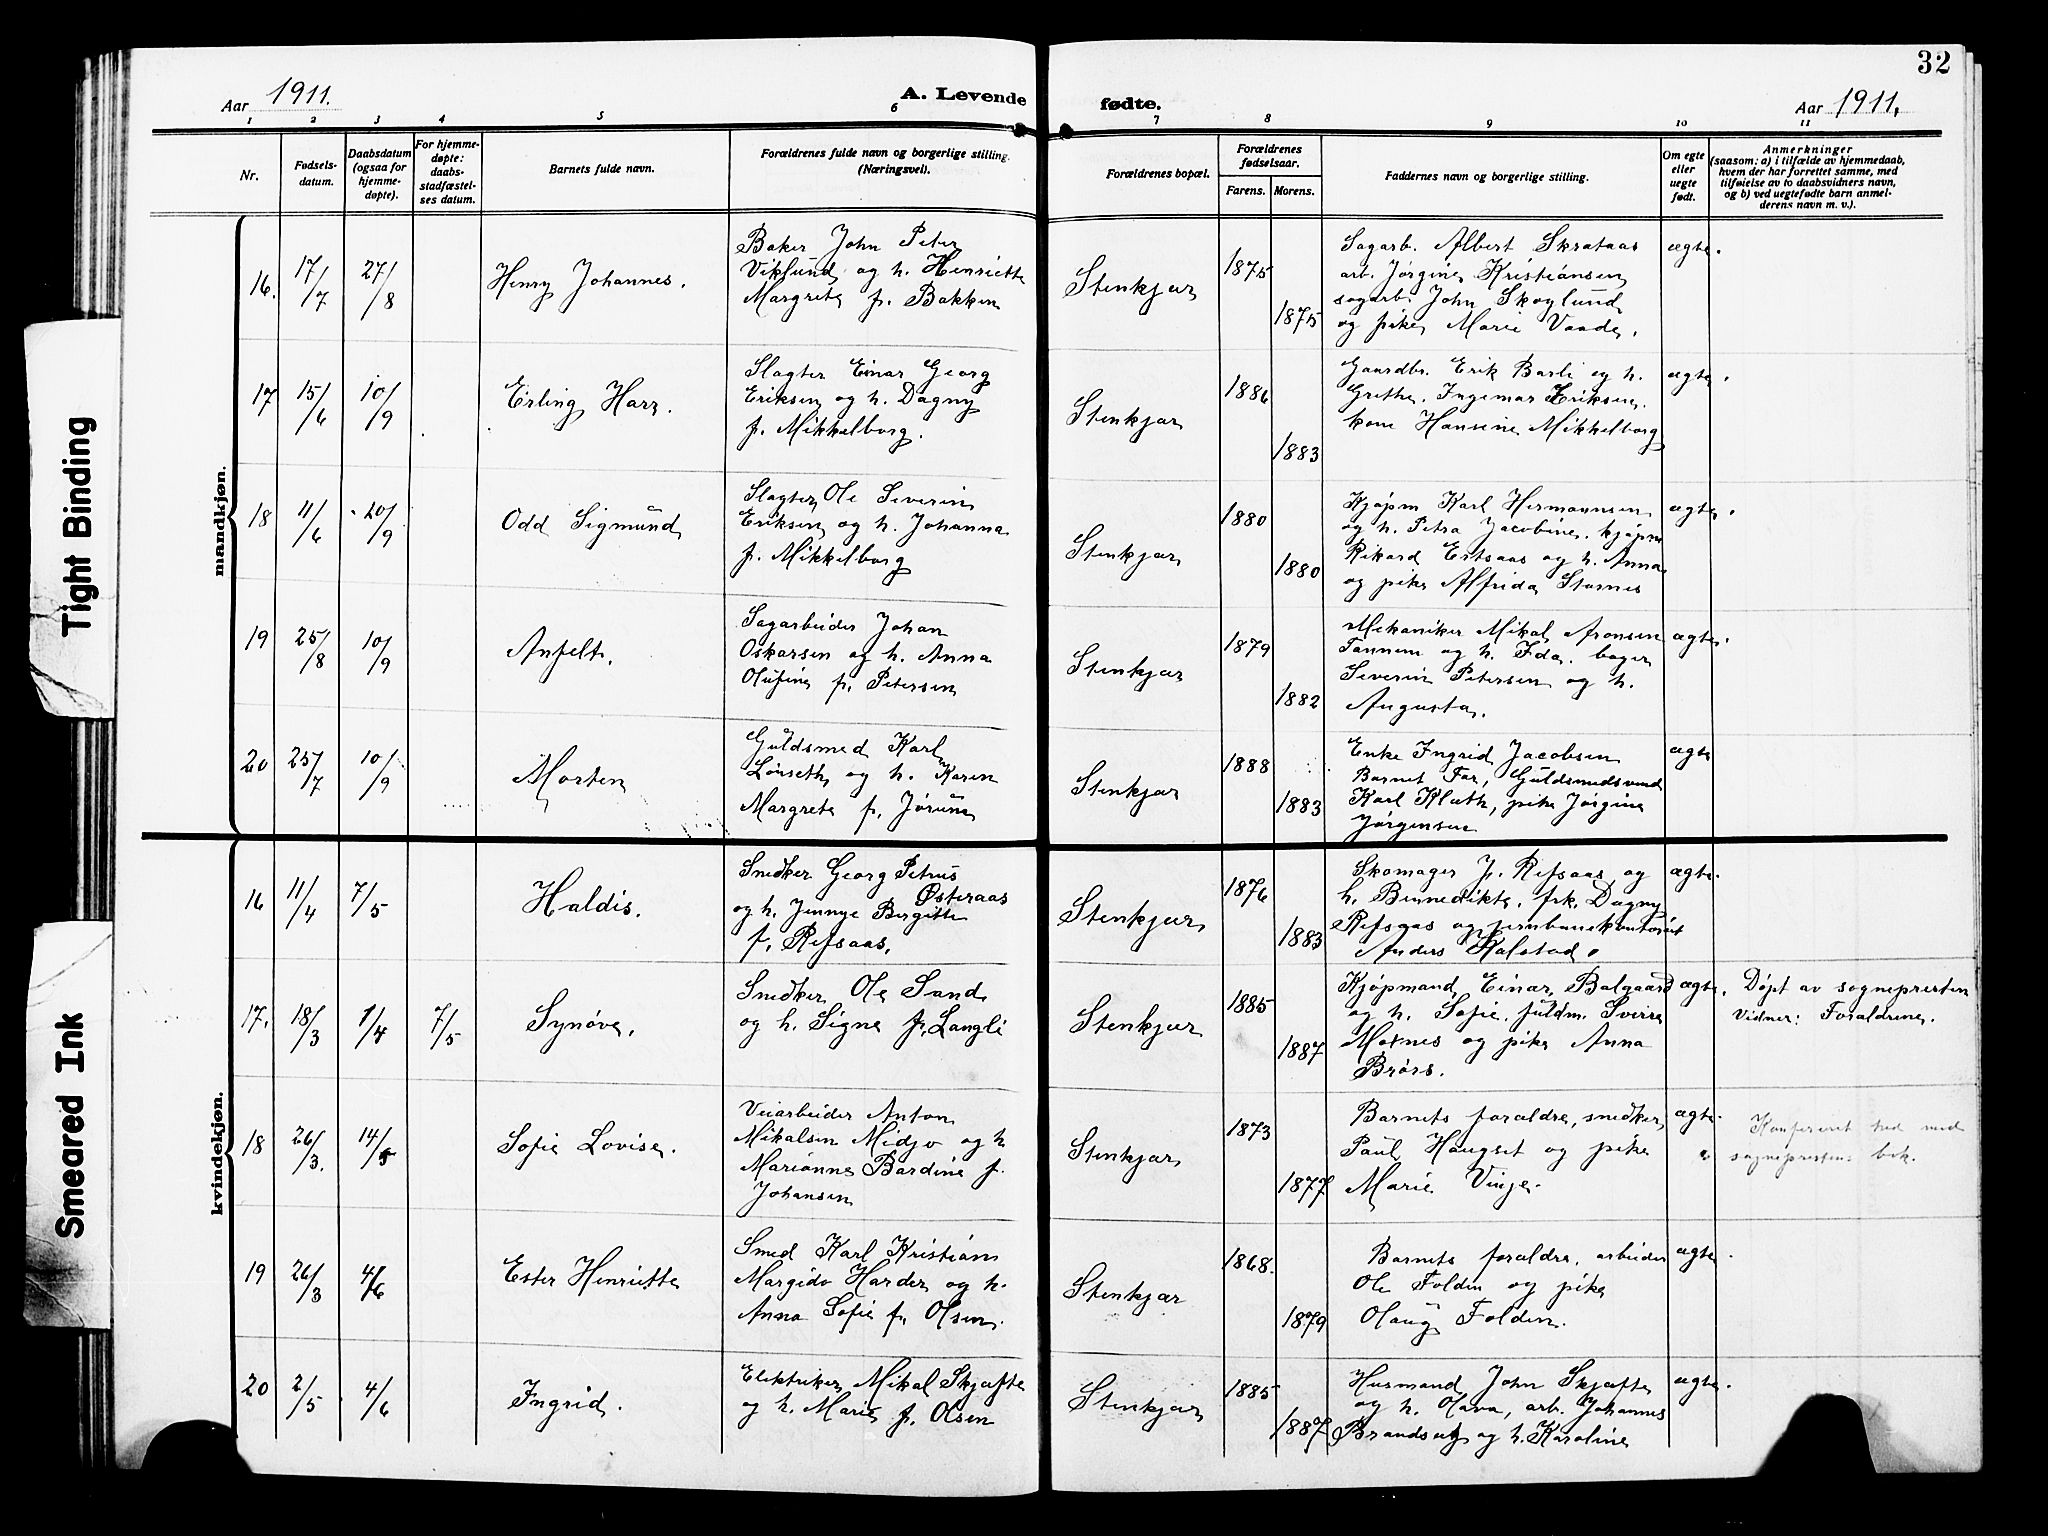 32
Aar 1911.
A. Levende
fødte.
Aar 1911.
1 2 3 4 5 6 7 8 9 10 11
Nr.
Fødsels-
datum.
Daabsdatum
(ogsaa for
hjemme-
døpte).
For hjemme-
døpte:
daabs-
stadfæstel-
ses datum.
Barnets fulde navn.
Forældrenes fulde navn og borgerlige stilling.
(Næringsvei).
Forældrenes bopæl.
Forældrenes
fødselsaar.
Farens. Morens.
Faddernes navn og borgerlige stilling.
Om egte
eller
uegte
født.
Anmerkninger
(saasom: a) i tilfælde av hjemmedaab,
hvem der har forrettet samme, med
tilføielse av to daabsvidners navn,
og b) ved uegtefødte barn anmel-
derens navn m. v.).
mandkjøn.
16. 17/7 27/8
Henry Johannes.
Baker John Peter
Viklund og h. Henriette
Margrete f. Bakken
Stenkjær
1875
1875
Sagarb. Albert Skrataas
arb. Jørgine Kristiansen
sagarb. John Skoglund
og pike Marie Vaade.
ægte.
17 15/6 10/9
Erling Harz.
Slagter Einar Georg
Eriksen og h. Dagny
f. Mikkelborg.
Stenkjær
1886
1883
Gaardbr. Erik Barli og h.
Grethe. Ingemar Eriksen.
kone Hansine Mikkelborg
ægte.
18 11/6 20/9
Odd Sigmund
Slagter Ole Severin
Eriksen og h. Johanna
f. Mikkelborg
Stenkjær
1880
1880
Kjøpm Karl Hermannsen
og h. Petra Jacobine. kjøpm
Rikard Ertsaas og h. Anna
og pike Alfrida Stornes
ægte.
19 25/8 10/9
Anfelt.
Sagarbeider Johan
Oskarsen og h. Anna
Olufine f. Petersen
Stenkjær
1879
1882
Mekaniker Mikal Aronsen
Tannem og h. Ida. bager
Severin Petersen og h.
Augusta.
ægte.
20 25/7 10/9
Morten
Guldsmed Karl
Lønseth og h. Karen
Margrete f. Jørum
Stenkjær
1888
1883
Enke Ingrid Jacobsen
Barnet Far, Guldsmedsvend
Karl Kluth, pike Jørgine
Jørgensen
ægte
kvindekjøn.
16 11/4 7/5
Haldis.
Snedker Georg Petrus
Østeraas
og h. Jennye Birgitte
f. Refsaas.
Stenkjær
1876
1883
Skomager J. Refsaas og
h. Bennedikte. frk. Dagny
Refsaas og jernbanekontorist
Anders Halstad.
ægte.
17. 18/3 1/4 7/5
Synøve.
Snedker Ole Sand
og h. Signe f. Langli
Stenkjær
1885
1887
Kjøpmand Einar Balgaard
og h. Sofie. fuldm. Sverre
Moxnes og pike Anna
Brørs.
ægte.
Døpt av sognepresten
Vidner: Forældrene.
18 26/3. 14/5
Sofie Lovise.
Veiarbeider Anton
Mikalsen Midjo og h
Marianne Bardine f.
Johansen
Stenkjær
1873
1877
Barnets forældre, snedker
Paul Haugset og pike
Marie Vinje.
ægte.
Konfereret hed med
sogneprestens bok.
19 26/3 4/6
Ester Henriette
Smed Karl Kristian
Margido Harder og h.
Anna Sofie f. Olsen.
Stenkjær
1868.
1879
Barnets forældre, arbeider
Ole Folden og pike
Olaug Folden.
ægte.
20 2/5 4/6
Ingrid.
Elektriker Mikal Skjefte
og h. Marie f. Olsen
Stenkjær
1885
1887
Husmand John Skjefte
og h. Olava, arb. Johannes
Brandseg og h. Karoline
ægte.
Tight Binding
Smeared Ink